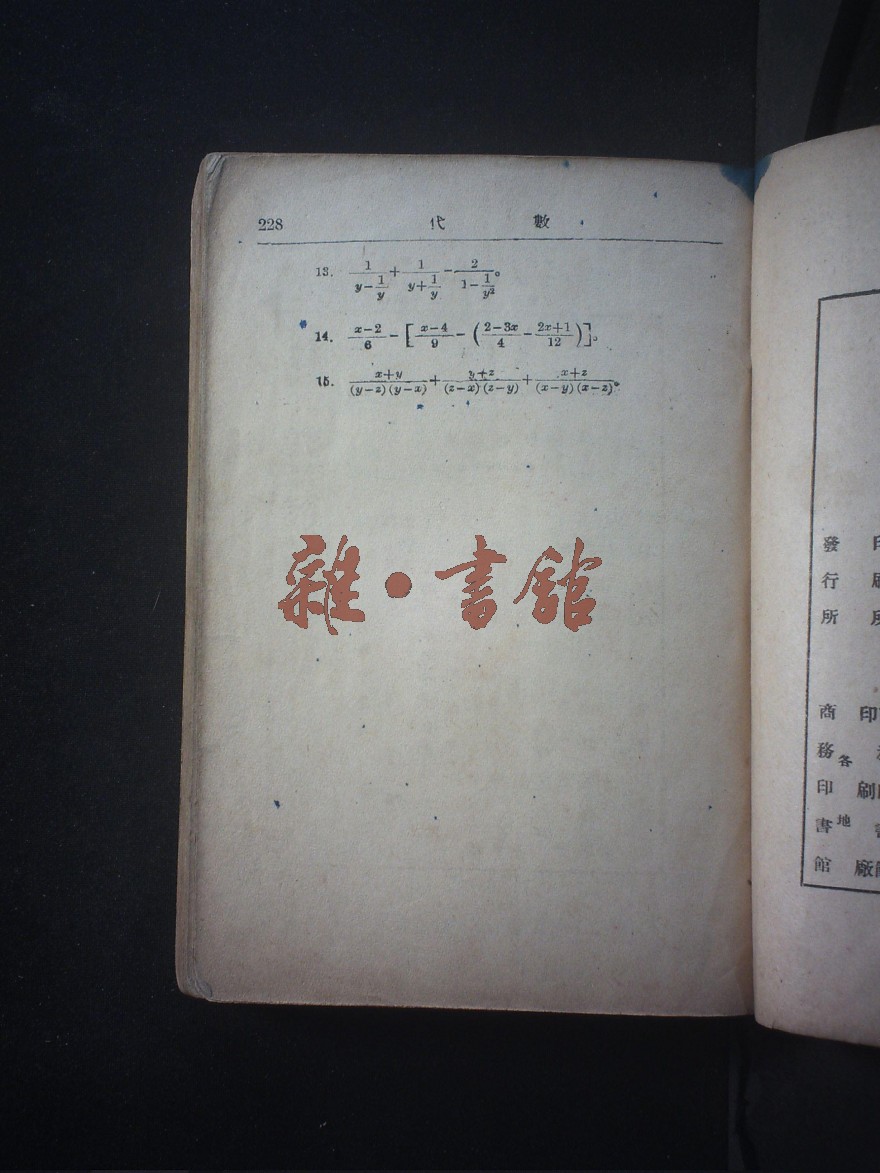 228 代 數
13. \frac{1}{y-\frac{1}{y}}+\frac{1}{y+\frac{1}{y}}-\frac{2}{1-\frac{1}{y^2}}。
14. \frac{x-2}{6}-[\frac{x-4}{9}-(\frac{2-3x}{4}-\frac{2x+1}{12})]。
15. \frac{x+y}{(y-z)(y-x)}+\frac{y+z}{(z-x)(z-y)}+\frac{x+z}{(x-y)(x-z)}。
雜·書館
發行所
商務印書館
各地
印刷
廠